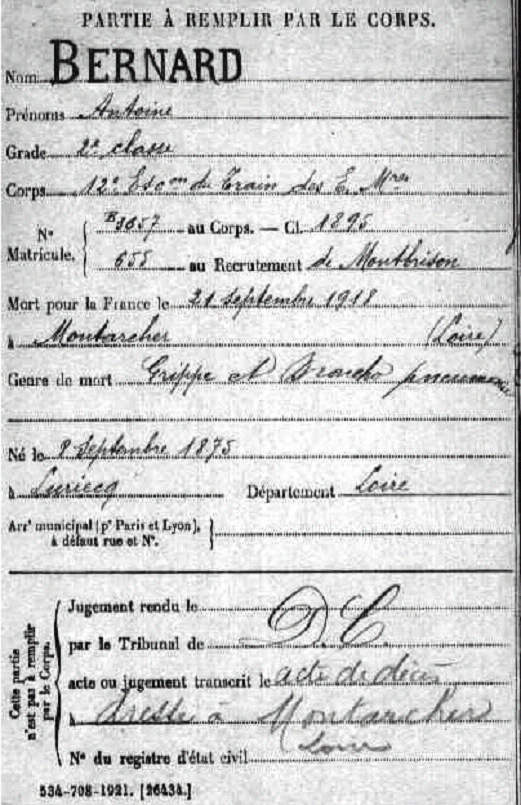 PARTIE À REMPLIR PAR LE CORPS.
Nom BERNARD
Prénoms Antoine
Grade 2e classe
Corps 12e Esc.on du Train des E. Mres
No Matricule. { B3657 au Corps. — Cl. 1895
658 au Recrutement de Montbrison
Mort pour la France le 21 Septembre 1918
à Montarcher (Loire)
Genre de mort Grippe et Broncho pneumonie
Né le 8 Septembre 1875
à Luriecq Département Loire
Arrt municipal (pr Paris et Lyon),
à défaut rue et No.
Cette partie
n'est pas à remplir
par le Corps.
Jugement rendu le
par le Tribunal de D.C.
acte ou jugement transcrit le acte de décès
à dressé à Montarcher
Loire
No du registre d'état civil
534-708-1921. [26434.]